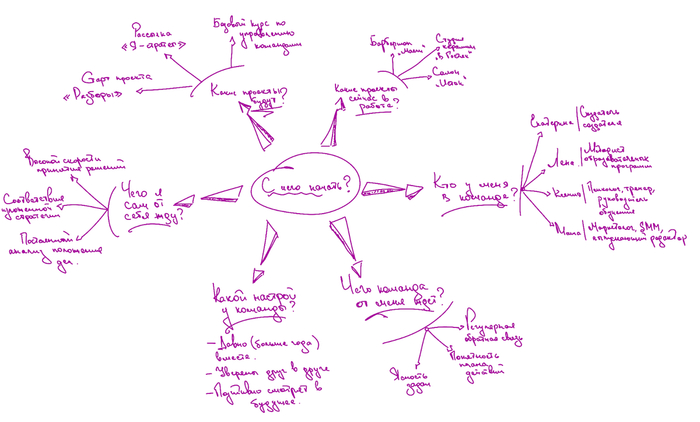 С чего начать?
Какие проекты
будут?
Рассылка
«Я-стратег»
Базовый курс по
управлению
командами
Старт проекта
«Разборы»
Какие проекты
сейчас в
работе?
Барбершоп
Студия
керамики
Салон
Кто у меня
в команде?
Екатерина
Создатель
создателя
Лена
Методист
образовательных
программ
Ксения
Психолог, тренер,
руководитель
обучения
Маша
Маркетолог, SMM,
выпускающий редактор
Чего команда
от меня ждёт?
Регулярная
обратная связь
Понятность
плана
действий
Ясность
задач
Какой настрой
у команды?
- Давно (больше года)
вместе.
- Уверены друг в друге
- Позитивно смотрят в
будущее.
Чего я
сам от
себя жду?
Высокой скорости
принятия решений
Соответствия
стратегии
анализ положения
дел.